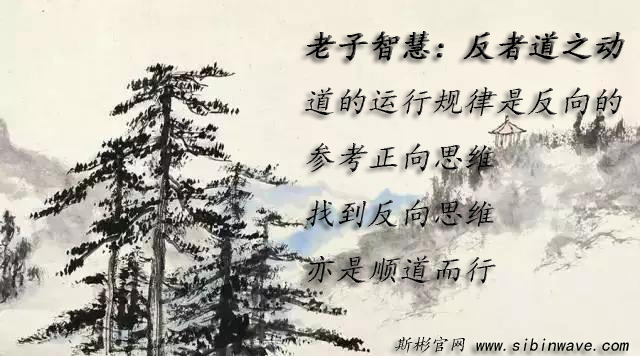 老子智慧：反者道之动
道的运行规律是反向的
参考正向思维
找到反向思维
亦是顺道而行
斯彬官网 www.sibinwave.com